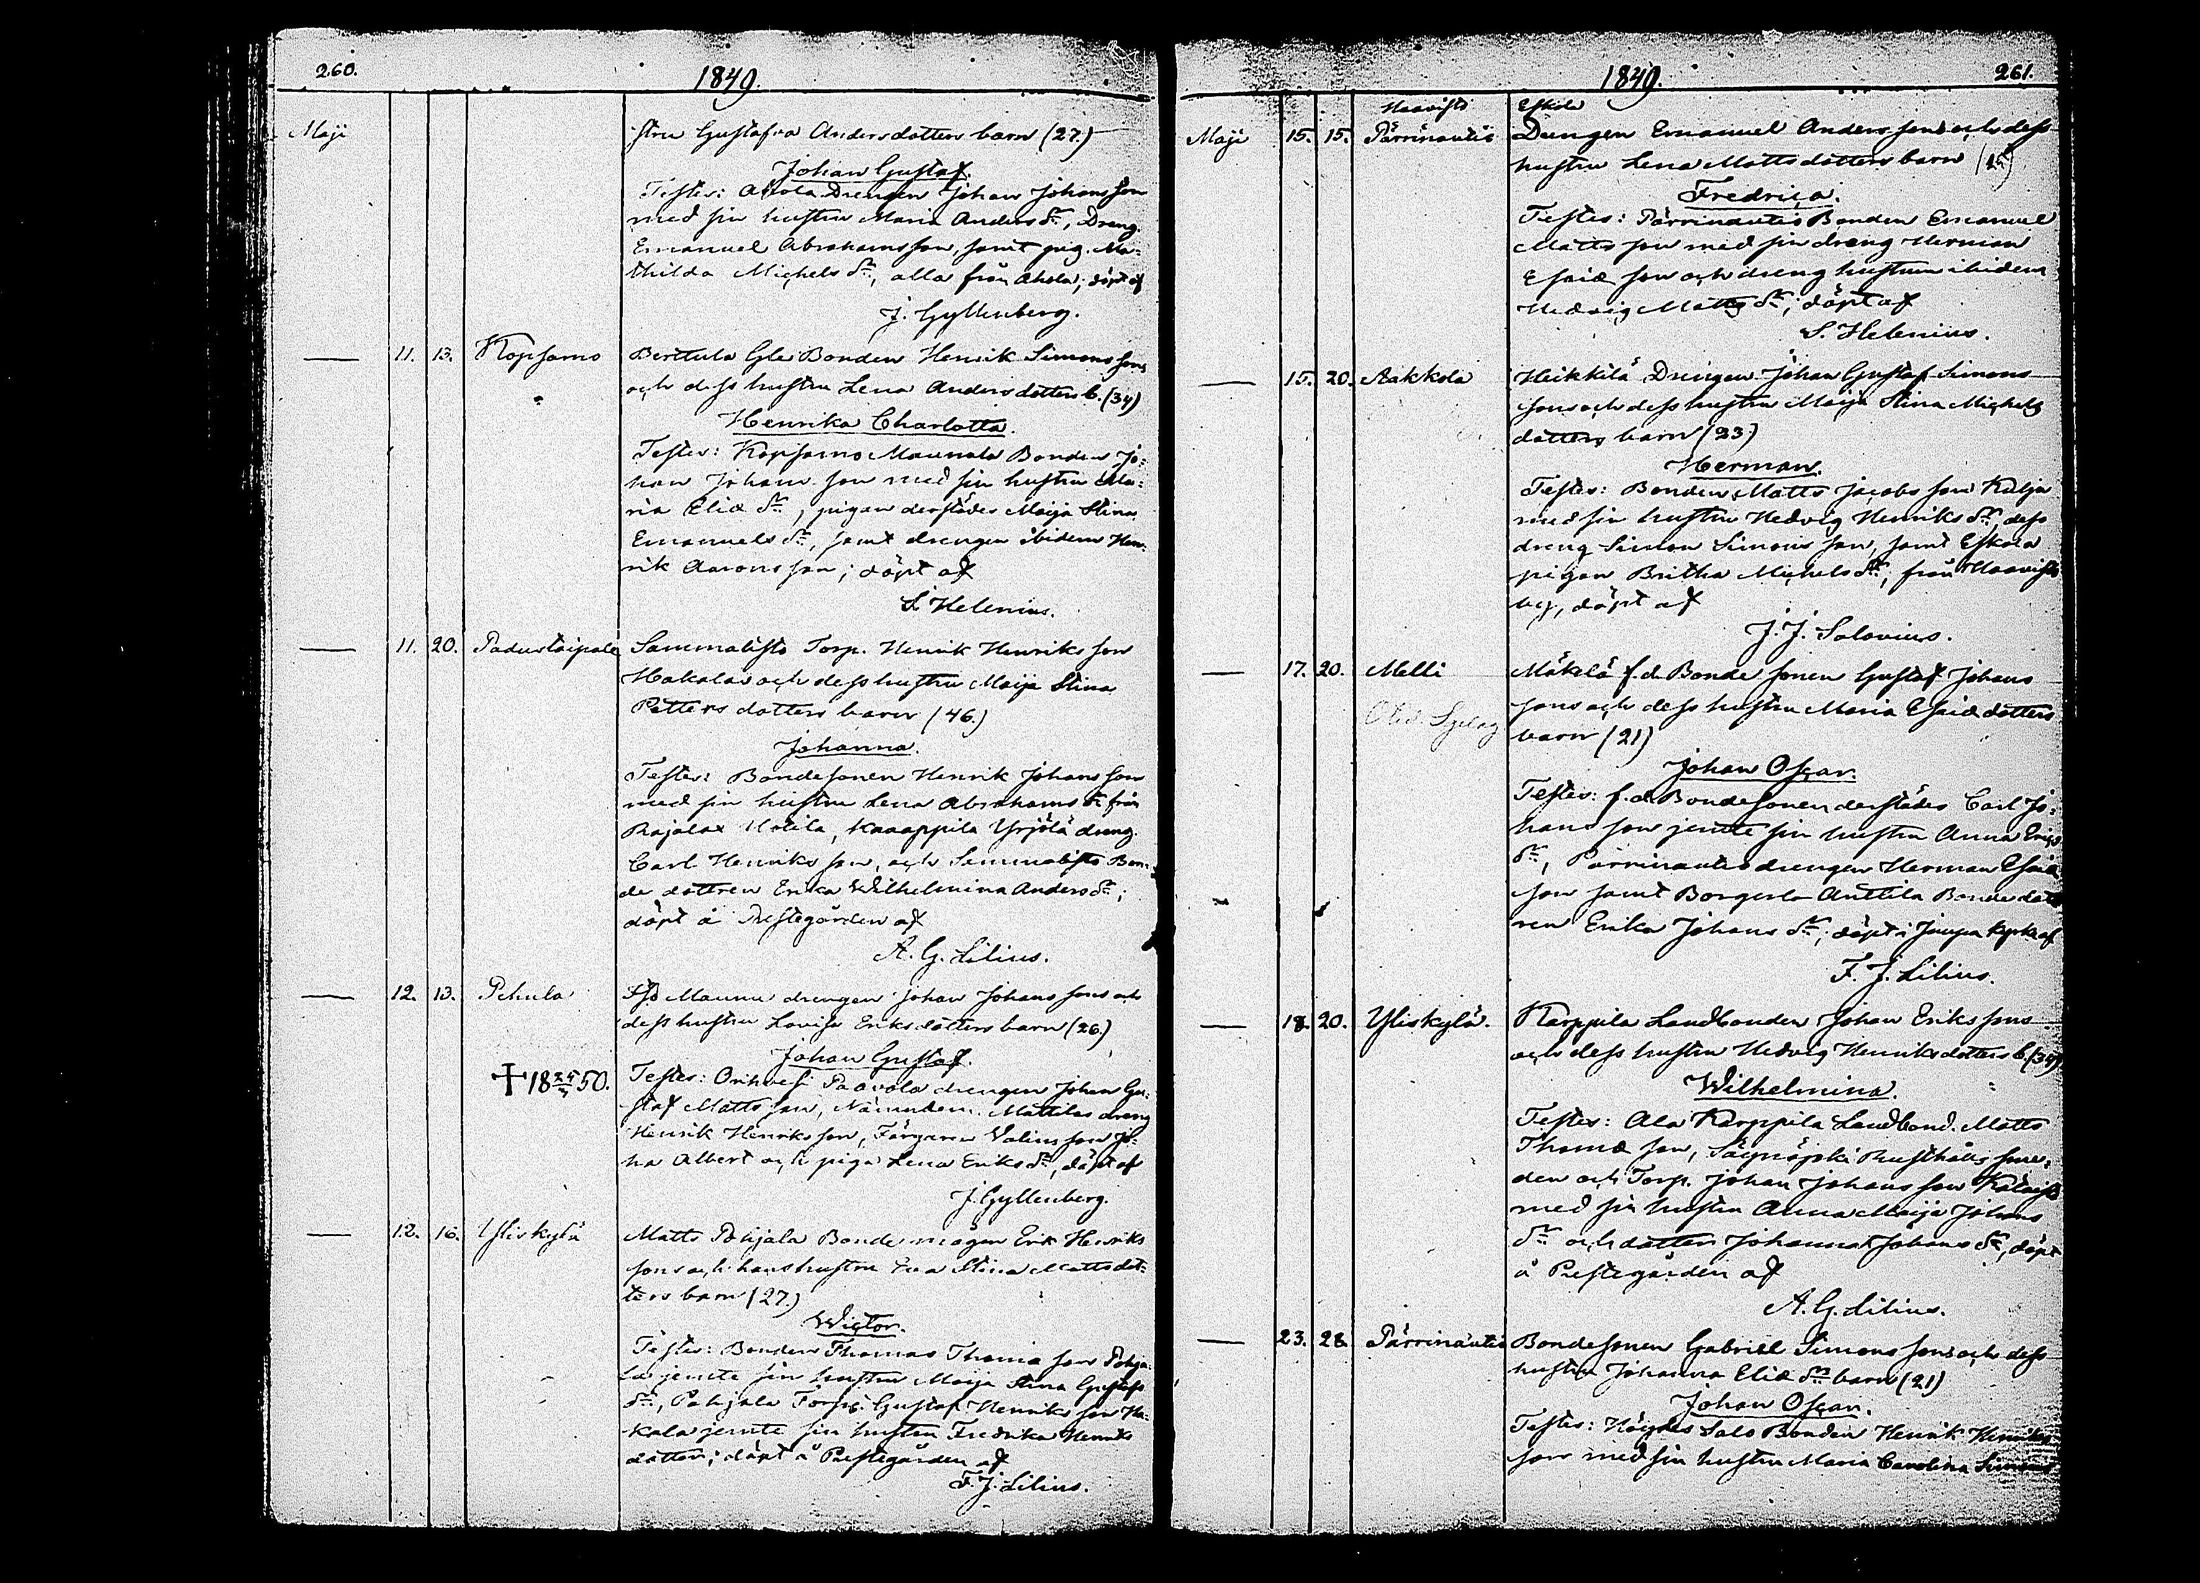 260.
1849.
Maji
stru Gustafva Andersdotters barn (27.)
Johan Gustaf.
Testes: Ahola Drengen Johan Johansson
med sin hustru Maria Anders dr, Dreng.
Emanuel Abrahamsson, samt pig. Ma-
thilda Michels dr, alla från Ahola; döpt af
J. Gyllenberg.
— 11. 13. Kopsamo Berttula Gle Bonden Henrik Simonssons
och dess hustru Lena Andersdotters b. (34)
Henrika Charlotta.
Testes: Kopsamo Maunala Bonden Jo-
han Johansson med sin hustru Ma-
ria Eliæ dr, pigan derstädes Maija Stina
Emanuels dr, samt drengen ibidem Hen-
rik Aaronsson; döpt af
S. Helenius.
— 11. 20. Padustaipale Sammalisto Torp. Henrik Henriksson
Hakalas och dess hustru Maija Stina
Petters dotters barn (46.)
Johanna.
Testes: Bondesonen Henrik Johansson
med sin hustru Lena Abrahams dr från
Rajalax Uotila, Kaaappila Yrjölä dreng.
Carl Henriksson, och Sammalisto Bon-
de dottren Erica Wilhelmina Anders dr;
döpt å Prestegården af
A. G. Lilius.
— 12. 13. Pehula Maunu drengen Johan Johanssons och
dess hustru Lovisa Eriksdotters barn (26.)
Johan Gustaf.
✝ 18 24/4 50.
Testes: Orihvesi Paavola drengen Johan Gu-
staf Mattsson, Nämndem. Mattilas dreng
Henrik Henriksson, Färgaren Valins son Jo-
ha Albert och piga Lena Eriks dr, döpt af
J. Gyllenberg.
— 12. 16. Yliskylä Matts Pohjala Bonde mågen Erik Henriks
sons och hans hustru Eva Stina Mattsdot-
ters barn (27.)
Wictor.
Testes: Bonden Thomas Thomæ son Pohja-
la jemte sin hustru Maija Stina Gustafs
dr, Pohjala Torp. Gustaf Henriksson Ha-
kala jemte sin hustru Fredrika Henriks
dotter; döpt å Prestegården af
F. J. Lilius.
1849.
261.
Haavisto Eskola
Maji 15. 15. Pärrinautis Drengen Emanuel Anderssons och dess
hustru Lena Mattsdotters barn
Fredrica.
Testes: Pärrinautis Bonden Emanuel
Mattsson med sin dreng Herman
Esaiæ son och dreng hustrun ibidem
Hedvig Matts dr; döpt af
S. Helenius.
— 15. 20. Aakkola Heikkilä Drengen Johan Gustaf Simons
sons och dess hustru Maija Stina Michels
dotters barn (23)
Herman.
Testes: Bonden Matts Jacobsson Kalja
med sin hustru Hedvig Henriks dr, dess
dreng Simon Simonsson, samt Eskola
pigan Britha Michels dr, från Haavisto
by, döpt af
J. J. Salovius.
— 17. 20. Melli Mäkelä f.d. Bonde sonen Gustaf Johans
sons och dess hustru Maria Esaiædotters
barn (21)
Johan Oscar.
Testes: f.d. Bondesonen derstädes Carl Jo-
hans son jemte sin hustru Anna Erics
dr, Pärrinautis drengen Herman Esaiæ
son samt Borgerla Anttila Bonde dott
ren Erika Johans dr; döpt i Jämsä kyrka af
F. J. Lilius.
— 18. 20. Yliskylä. Karppila Landbonden Johan Erikssons
och dess hustru Hedvig Henriksdotters b. (34)
Wilhelmina.
Testes: Ala Karppila Landbond. Matts
Thomæ son, Rusthålls sme-
den och Torp. Johan Johansson
med sin hustru Anna Maija Johans
dr och dotter Johanna Johans dr, döpt
å Prestegården af
A. G. Lilius.
— 23. 28. Pärrinautis Bondesonen Gabriel Simonssons och dess
hustru Johanna Eliæ drs barn (21)
Johan Oscar.
Testes: Salo Bonden Henrik Henriks
son med sin hustru Maria Carolina Simons